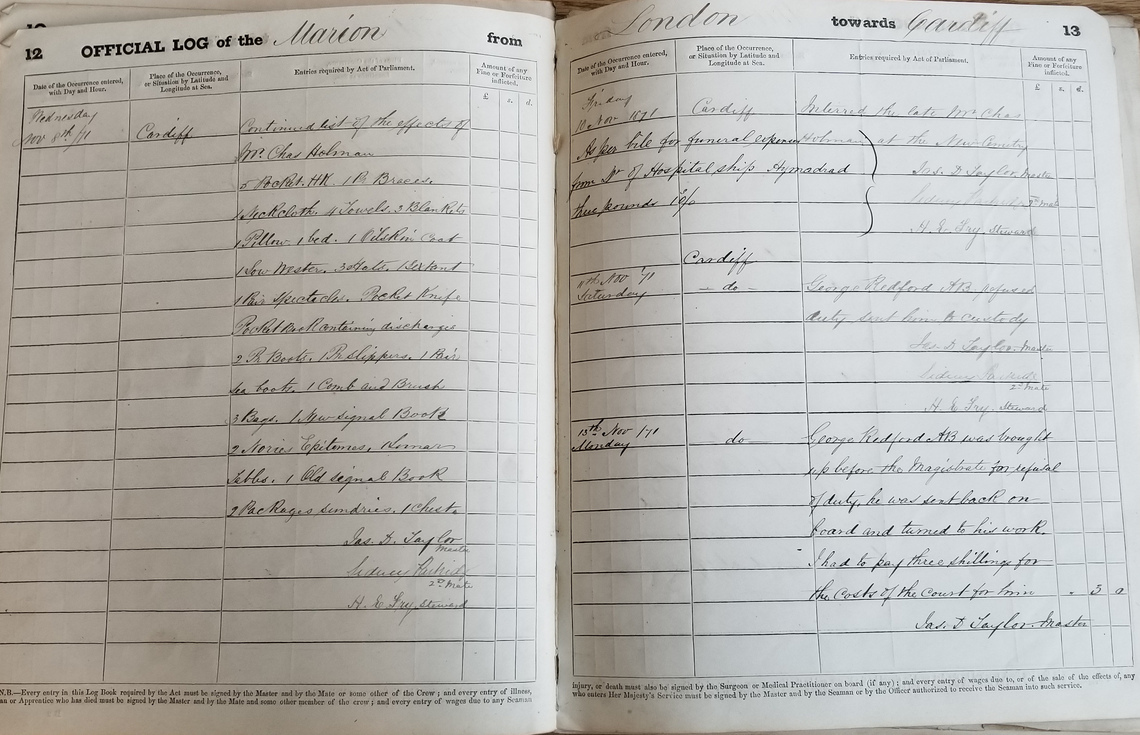 12 OFFICIAL LOG of the Marion from
Date of the Occurrence entered, with Day and Hour.
Place of the Occurrence, or Situation by Latitude and Longitude at Sea.
Entries required by Act of Parliament.
Amount of any Fine or Forfeiture inflicted.
£ s. d.
Wednesday
Nov 8th /71 Cardiff Continued list of the effects of
Mr. Chas Holman
5 Pocket. HK 1 Pr Braces.
1 Neckcloth. 4 Towels. 3 Blankets
1 Pillow. 1 bed. 1 Oilskin Coat
1 Sow Wester. 3 Hats. 1 Sextant
1 Pair Spectacles. Pocket Knife
Pocket Book containing discharges
2 Pr Boots. 1 Pr Slippers. 1 Pair
Sea boots. 1 Comb and Brush
3 Bags. 1 New signal Book
2 Nories Epitomes.
Tables. 1 Old signal Book
2 Packages sundries. 1 Chest
Jas. D. Taylor
Master
Sidney
2nd Mate
H. E Fry. Steward
N.B.—Every entry in this Log Book required by the Act must be signed by the Master and by the Mate or some other of the Crew; and every entry of illness,
or Apprentice who has died must be signed by the Master and by the Mate and some other member of the crew; and every entry of wages due to any Seaman
London towards Cardiff 13
Date of the Occurrence entered, with Day and Hour.
Place of the Occurrence, or Situation by Latitude and Longitude at Sea.
Entries required by Act of Parliament.
Amount of any Fine or Forfeiture inflicted.
£ s. d.
Friday
10. Nov 1871 Cardiff Interred the late Mr Chas
As per bile for funeral expences Holman at the New Cemitry
from of Hospital ship Jas. D Taylor Master
three pounds 10/0 Sidney 2nd Mate
H. E. Fry. Steward
Cardiff
11th Nov '71 - do - George Redford AB refused
Saturday
duty sent him to custody
Jas. D Taylor. Master
Sidney
2nd Mate
H. E Fry. Steward
13th Nov /71 do George Redford AB was brought
Monday
up before the Magistrate for refusal
of duty, he was sent back on
board and turned to his work.
I had to pay three shillings for
the costs of the Court for him - 3 0
Jas. D Taylor. Master
injury, or death must also be signed by the Surgeon or Medical Practitioner on board (if any); and every entry of wages due to, or of the sale of the effects of, any
who enters Her Majesty's Service must be signed by the Master and by the Seaman or by the Officer authorized to receive the Seaman into such service.